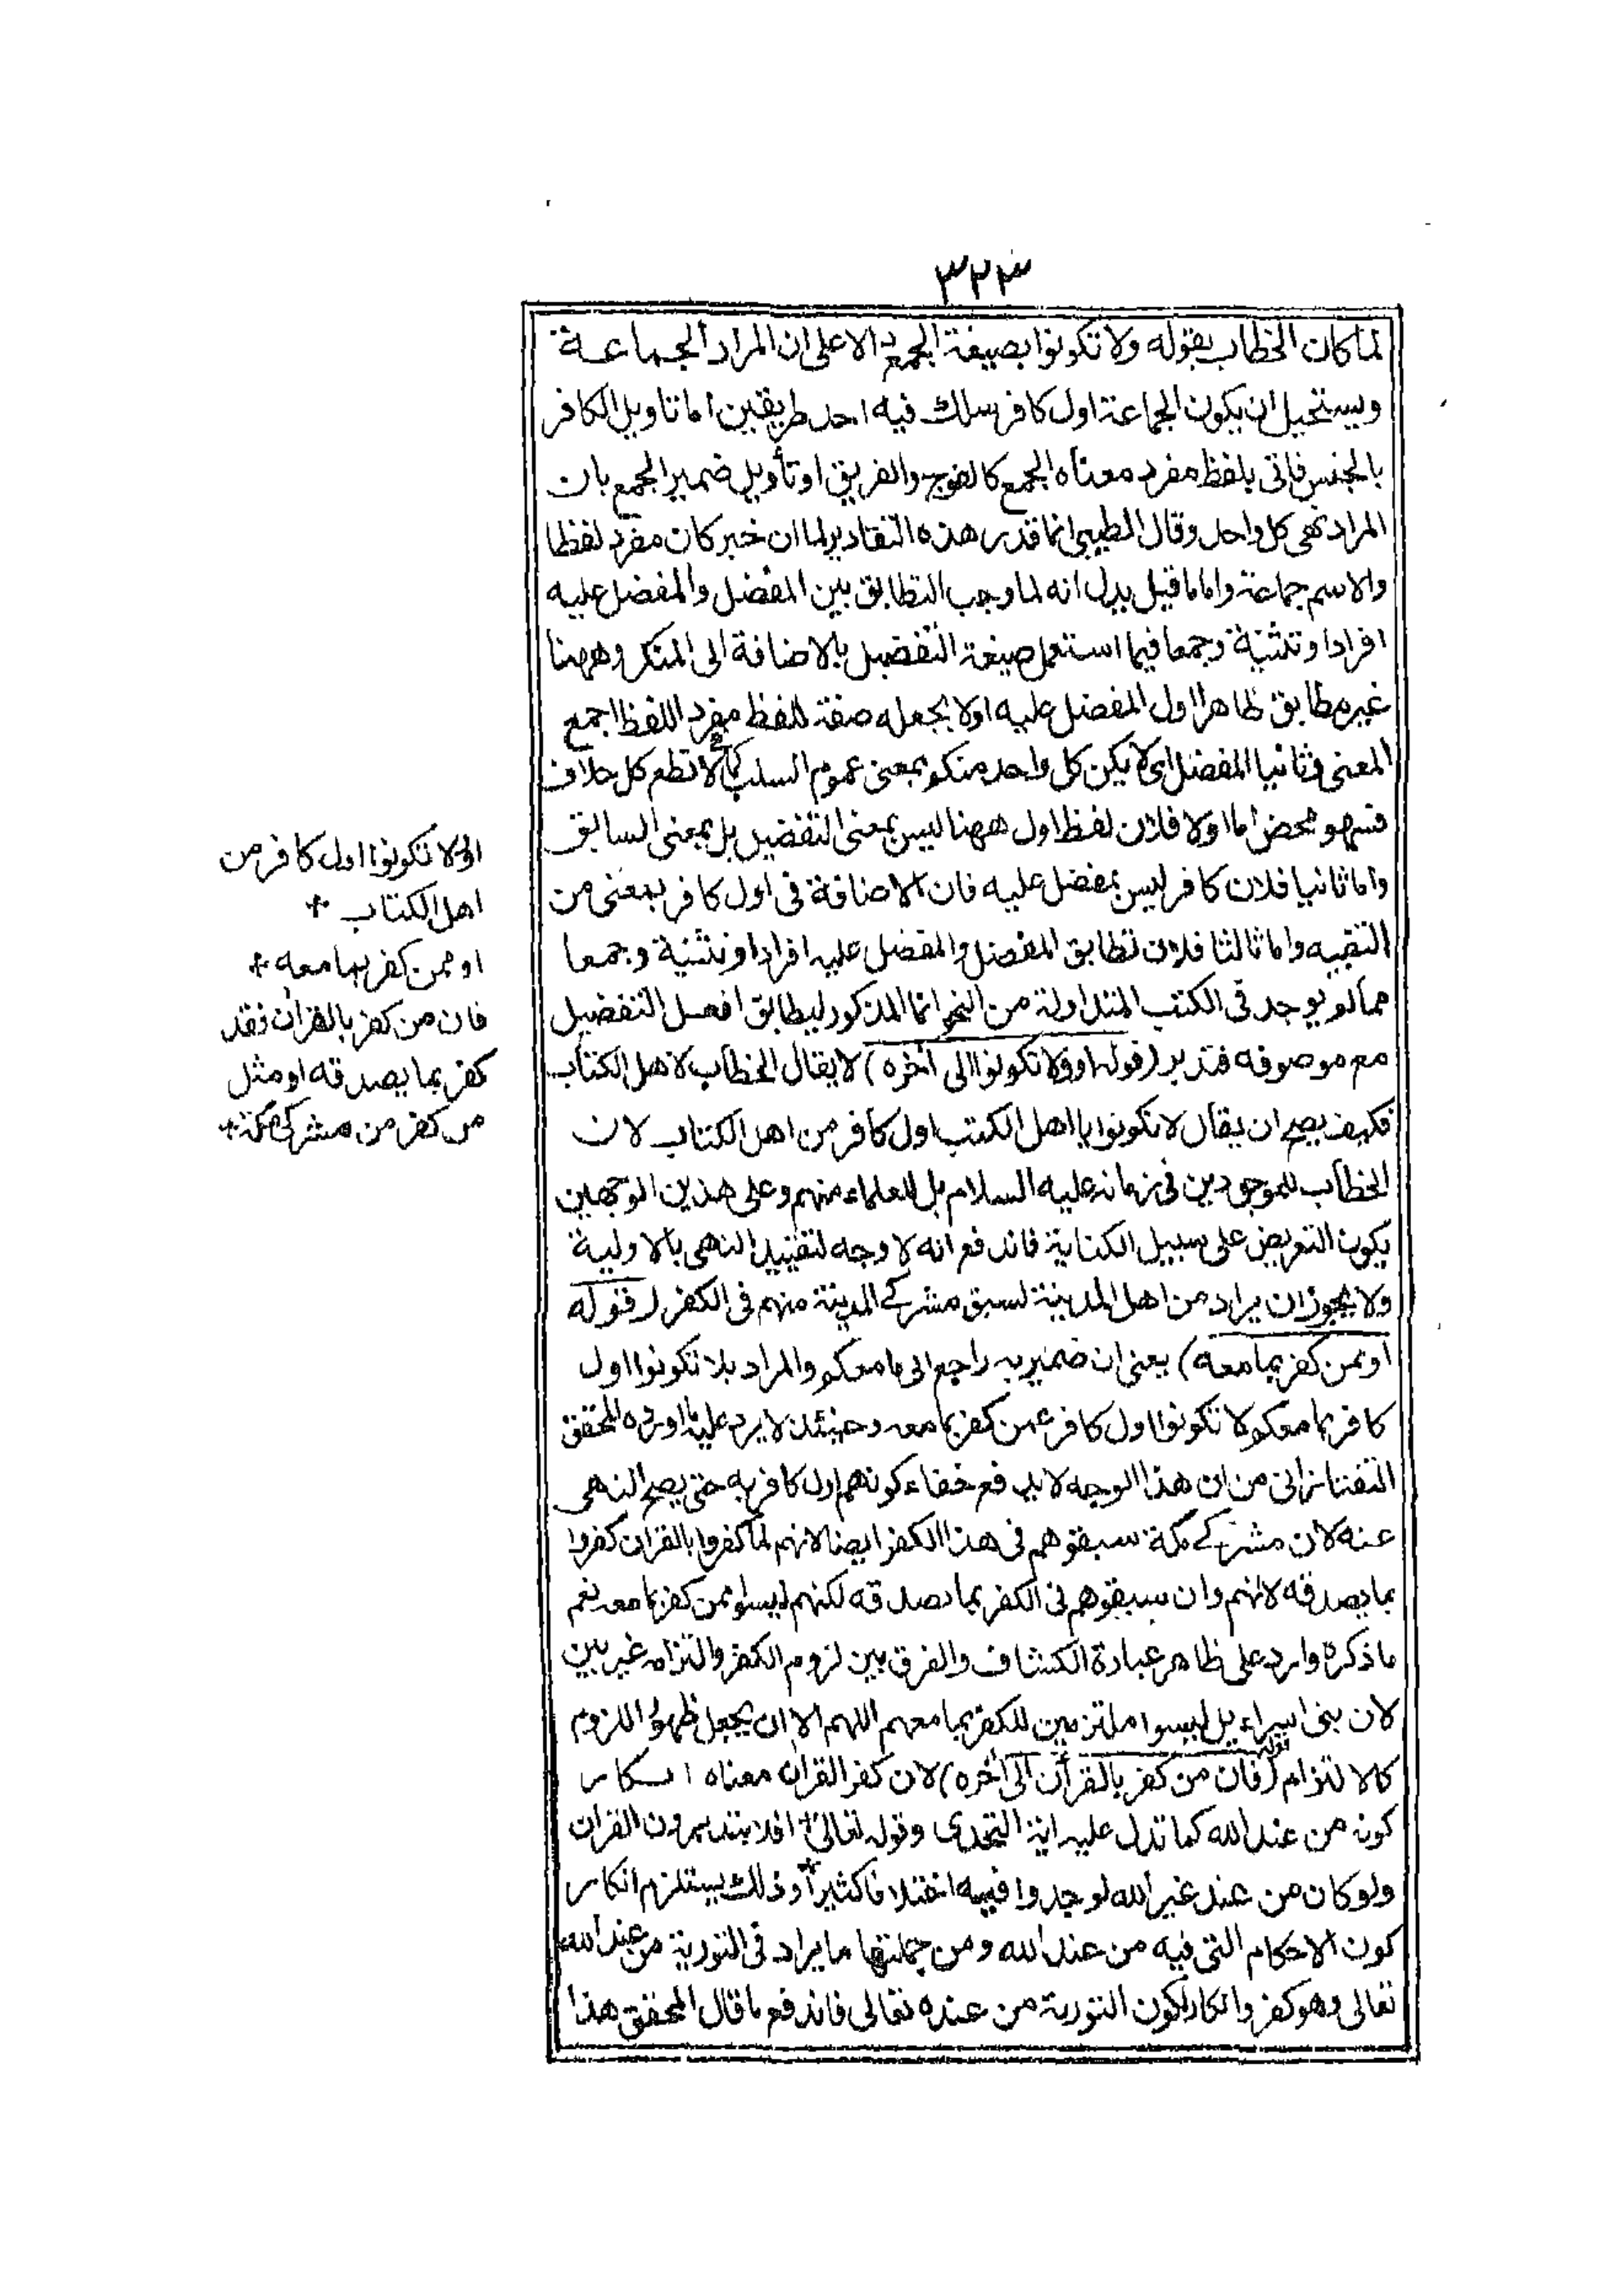 ٣٢٣
لما كان الخطاب بقوله ولا تكونوا بصيغة الجمع دالا على ان المراد الجماعة
ويستحيل ان يكون الجماعة اول كافر سلك فيه احد طريقين اما تاويل الكافر
بالجنس فاتى بلفظ مفرد معناه الجمع كالفوج والفريق او تأويل ضمير الجمع بان
المراد نهى كل واحد وقال الطيبي انما قدر هذه التقادير لما ان خبر كان مفرد لفظا
والاسم جماعة واما ما قيل بدل انه لما وجب التطابق بين المفضل والمفضل عليه
افرادا وتثنية وجمعا فيما استعمل صيغة التفضيل بالاضافة الى المنكر وههنا
غير مطابق ظاهرا اول المفضل عليه اولا بجعله صفة للفظ مفرد اللفظ جمع
المعنى وثانيا المفضل اى لا يكن كل واحد منكم بمعنى عموم السلب كما فى لا تطع كل حلاف
فسهو محض اما اولا فلان لفظ اول ههنا ليس بمعنى التفضيل بل بمعنى السابق
واما ثانيا فلان كافر ليس بمفضل عليه فان الاضافة فى اول كافر بمعنى من
واما ثالثا فلان تطابق المفضل والمفضل عليه افرادا وتثنية وجمعا
مما لم يوجد فى الكتب المتداولة من النحو انما المذكور ليطابق افعل التفضيل
مع موصوفه فتدبر (قوله اوولا تكونوا الى اخره) لا يقال الخطاب لاهل الكتاب
فكيف يصح ان يقال لا تكونوا يا اهل الكتب اول كافر من اهل الكتاب لان
الخطاب للموجودين فى زمانه عليه السلام بل للعلماء منهم وعلى هذين الوجهين
يكون التعريض على سبيل الكناية فاندفع انه لا وجه لتقييد النهى بالاولية
ولا يجوز ان يراد من اهل المدينة لسبق مشركے المدينة منهم فى الكفر (قوله
او ممن كفر بما معه) يعنى ان ضمير به راجع الى ما معكم والمراد بلا تكونوا اول
كافر بما معكم لا تكونوا اول كافر ممن كفر بما معه وحينئذ لا يرد عليه ما اورده المحقق
التفتازانى من ان هذا الوجه لا يدفع خفاء كونهم اول كافر به حتى يصح النهى
عنه لان مشركے مكة سبقوهم فى هذا الكفر ايضا لانهم لما كفروا بالقران كفروا
بما يصدقه لانهم وان سبقوهم فى الكفر بما يصدقه لكنهم ليسوا ممن كفر بما معه نعم
ما ذكره وارد على ظاهر عبارة الكشاف والفرق بين لزوم الكفر والتزامه غير بين
لان بنى اسراءيل ليسوا ملتزمين للكفر بما معهم اللهم الا ان يجعل ظهور اللزوم
كالالتزام (قوله فان من كفر بالقرأن الى أخره) لان كفر القران معناه انكار
كونه من عند الله كما تدل عليه اية التحدى وقوله تعالى افلا يتدبرون القران
ولو كان من عند غير الله لوجدوا فيه اختلافا كثيرا وذلك يستلزم انكار
كون الاحكام التى فيه من عند الله ومن جملتها ما يراد فى التورية من عند الله
تعالى وهو كفر وانكار لكون التورية من عنده تعالى فاندفع ما قال المحقق هذا
اولا تكونوا اول كافر من
اهل الكتاب
او ممن كفر بما معه
فان من كفر بالقرأن فقد
كفر بما يصدقه او مثل
من كفر من مشركى مكة